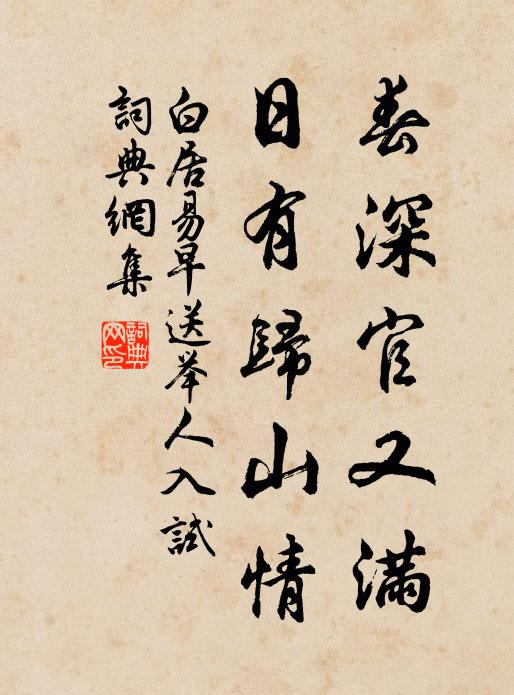 春深官又满
日有歸山情
白居易早送举人入試
詞典網集
詞典网印